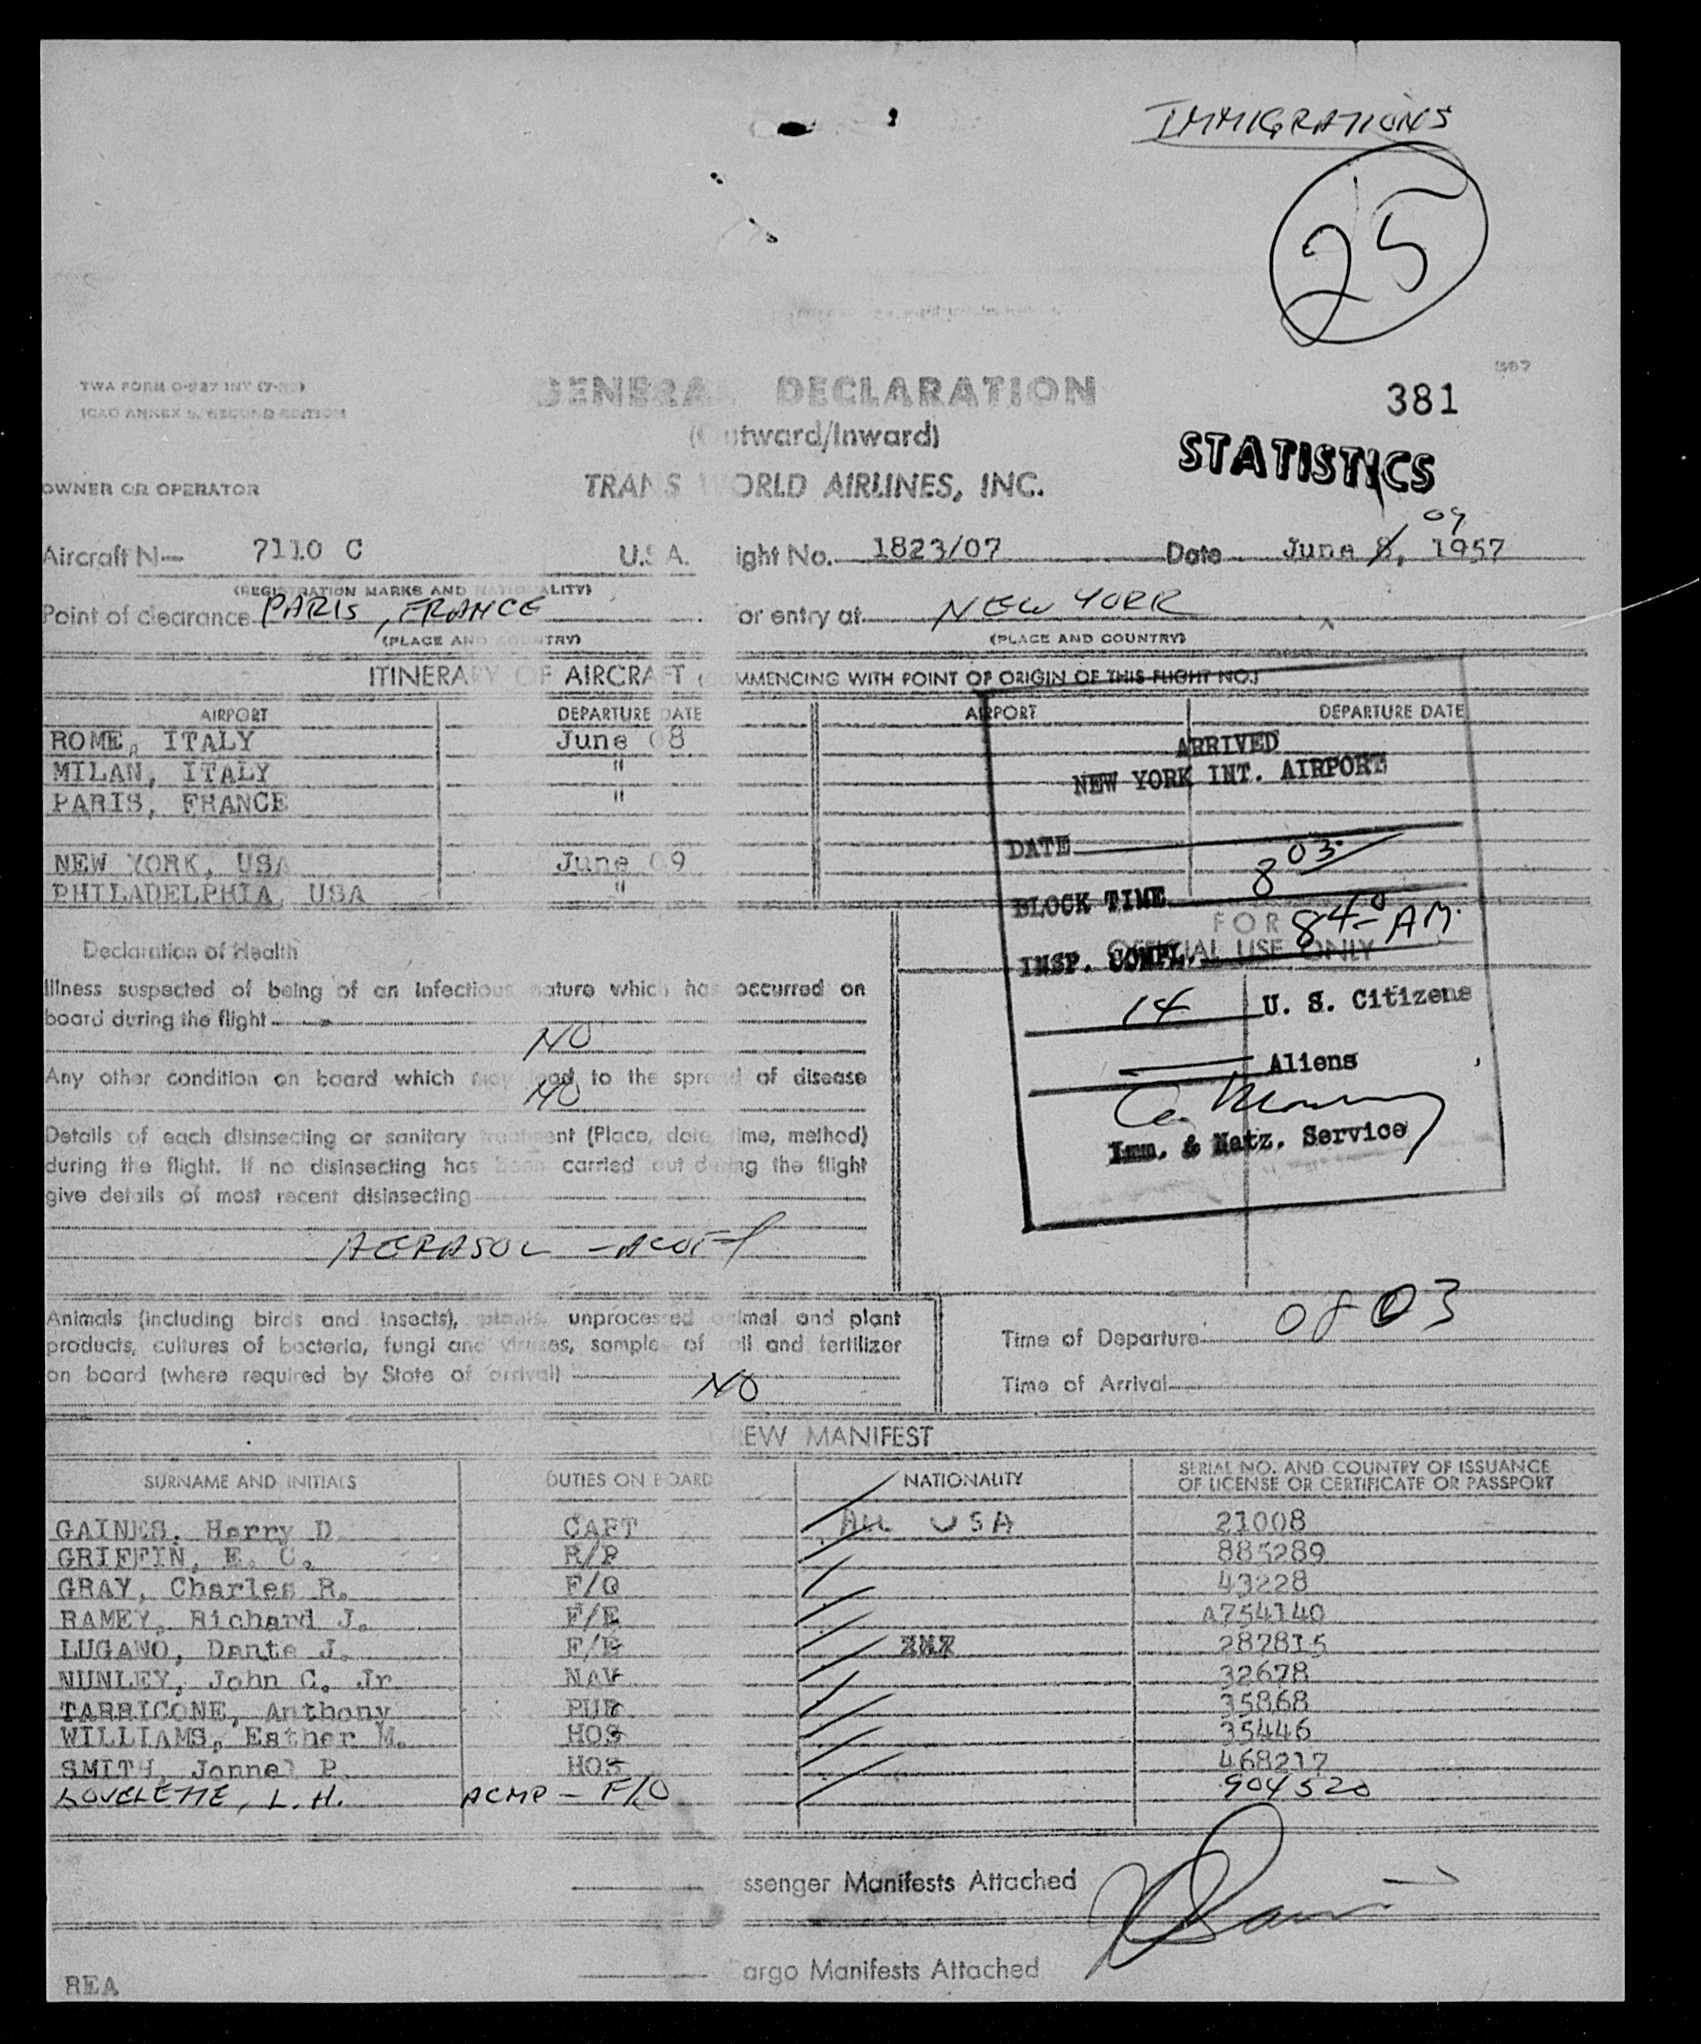 IMMIGRATIONS
25
387
TWA FORM O-527 INT
GENERAL DECLARATION
381
ICAO ANNEX 9, SECOND EDITION
(Outward/Inward)
STATISTICS
OWNER OR OPERATOR
TRANS WORLD AIRLINES, INC.
09
Aircraft N— 7110 C U.S.A. ight No. 1823/07 Date June 8, 1957
(REGISTRATION MARKS AND NATIONALITY)
Point of clearance PARIS, FRANCE or entry at NEW YORK
(PLACE AND COUNTRY) (PLACE AND COUNTRY)
ITINERARY OF AIRCRAFT (COMMENCING WITH POINT OF ORIGIN OF THIS FLIGHT NO.)
AIRPORT DEPARTURE DATE AIRPORT DEPARTURE DATE
ROME, ITALY June 08
MILAN, ITALY "
PARIS, FRANCE "
NEW YORK, USA June 09
PHILADELPHIA, USA "
ARRIVED
NEW YORK INT. AIRPORT
DATE
BLOCK TIME 8 03
FOR
OFFICIAL USE ONLY
INSP. COMPL. 840 AM.
14 U. S. Citizens
Aliens
Imm. & Natz. Service
Declaration of Health
Illness suspected of being of an infectious nature which has occurred on
board during the flight
NO
Any other condition on board which may lead to the spread of disease
NO
Details of each disinsecting or sanitary treatment (Place, date, time, method)
during the flight. If no disinsecting has been carried out during the flight
give details of most recent disinsecting
AERASOL
Animals (including birds and insects), plants, unprocessed animal and plant
products, cultures of bacteria, fungi and viruses, samples of soil and fertilizer
on board (where required by State of arrival)
NO
Time of Departure 0803
Time of Arrival
EW MANIFEST
SURNAME AND INITIALS DUTIES ON BOARD NATIONALITY SERIAL NO. AND COUNTRY OF ISSUANCE
OF LICENSE OR CERTIFICATE OR PASSPORT
GAINES, Harry D. CAPT ALL USA 21008
GRIFFIN, E. C. R/P 885289
GRAY, Charles R. F/O 43228
RAMEY, Richard J. F/E A754140
LUGANO, Dante J. F/E 287815
NUNLEY, John C. Jr NAV 32678
TARRICONE, Anthony PUR 35868
WILLIAMS, Esther M. HOS 35446
SMITH, Jonnel P. HOS 468217
LOVELETTE, L. H. ACMP - F/O 904520
ssenger Manifests Attached
argo Manifests Attached
REA